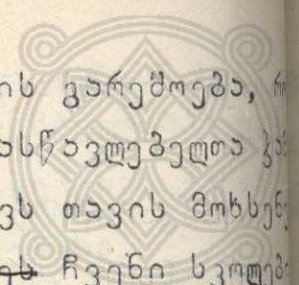 ის გარემოება,
ასწავლებელთა
ვს თავის მოხსენ
ჩვენი სკოლებ